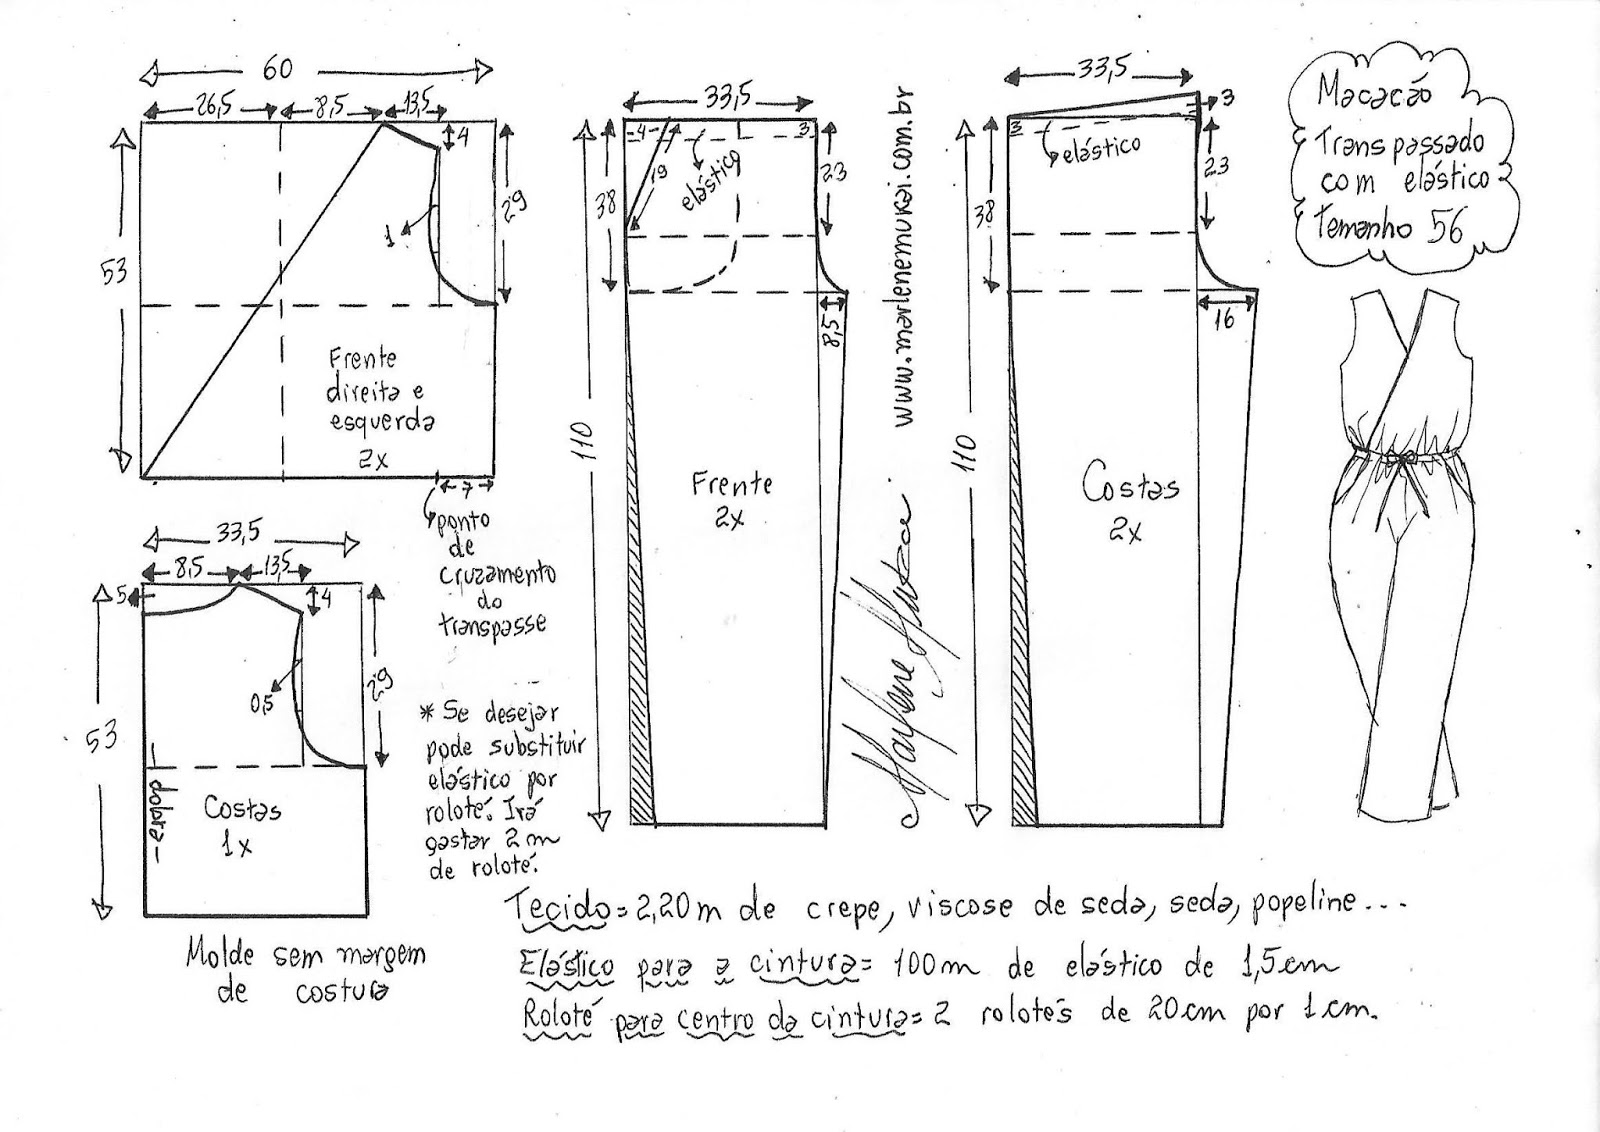 60
26,5
8,5
13,5
4
29
1
53
Frente
direita e
esquerda
2x
7
ponto
de
cruzamento
do
transpasse
33,5
8,5
13,5
5
4
29
0,5
53
dobra
Costas
1x
Molde sem margem
de costura
* Se desejar
pode substituir
elástico por
roloté. Irá
gastar 2m
de roloté.
33,5
4
3
19
elástico
38
23
8,5
110
Frente
2x
www.marlenemukai.com.br
Marlene Mukai
33,5
3
3
elástico
38
23
16
110
Costas
2x
Macacão
Transpassado
com elástico
Temanho 56
Tecido= 2,20m de crepe, viscose de seda, seda, popeline...
Elástico para a cintura= 100m de elástico de 1,5cm
Roloté para centro da cintura= 2 rolotés de 20cm por 1cm.